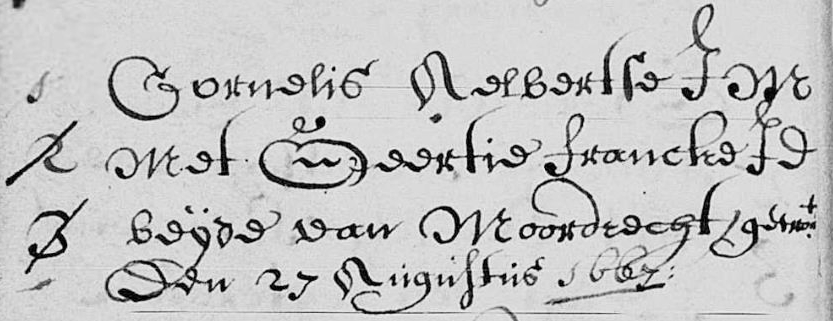 1 Cornelis Aelbertse J M
2 Met Geertie francke J d
3 beÿde van Moordrecht / getrout
Den 27 Augustus 1667: